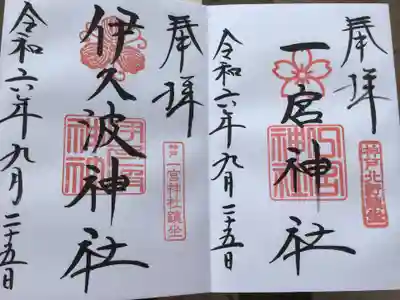 奉拝
一宮神社
令和六年九月二十五日
奉拝
伊久波神社
一宮神社鎮坐
令和六年九月二十五日